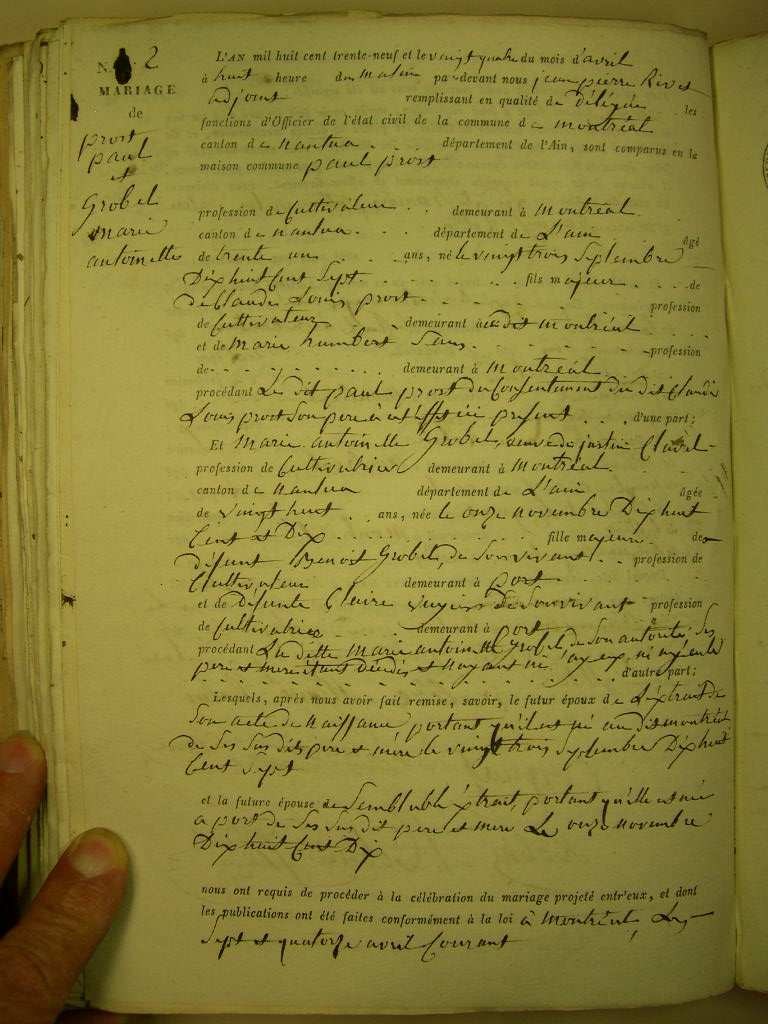 N. 2
MARIAGE
de
prost
paul
et
Grobel
marie
antoinette
L'AN mil huit cent trente-neuf et le vingt quatre du mois d'avril
à huit heure du matin par-devant nous jean pierre Rivet
adjoint remplissant en qualité de Délégué les
fonctions d'Officier de l'état civil de la commune de montréal
canton de nantua département de l'Ain, sont comparus en la
maison commune paul prost
profession de Cultivateur demeurant à montréal
canton de nantua département de L'ain âgé
de trente un ans, né le vingt trois Septembre
Dix huit Cent Sept fils majeur de
de Claude Louis prost profession
de Cultivateur demeurant à dit montréal
et de marie humbert Sans profession
de demeurant à montréal
procédant Le dit paul prost du Consentement du dit Claude
Louis prost Son pere à cet effet ici présent d'une part;
Et marie antoinette Grobel, veuve de justin Clavel
profession de Cultivatrice demeurant à montréal
canton de nantua département de L'ain âgée
de vingt huit ans, née le onze novembre Dix huit
Cent et Dix fille majeure de
défunt Benoit Grobel, de Son vivant profession de
Cultivateur demeurant à port
et de défunte Claire de Son vivant profession
de Cultivatrice demeurant à port
procédant La ditte marie antoinette Grobel de Son autorité, Ses
pere et mere étant Décédés et n'ayant ni ayeux ni ayeule
d'autre part;
Lesquels, après nous avoir fait remise, savoir, le futur époux de L'éxtrait de
Son acte de naissance portant qu'il est né au dit montréal
de Ses Sus dits pere et mère le vingt trois Septembre Dix huit
Cent Sept
et la future épouse de Semblable éxtrait, portant qu'elle est née
a port de Ses Sus dit pere et mere Le onze novembre
Dix huit Cent Dix
nous ont requis de procéder à la célébration du mariage projeté entr'eux, et dont
les publications ont été faites conformément à la loi à montréal, Les
Sept et quatorze avril Courant